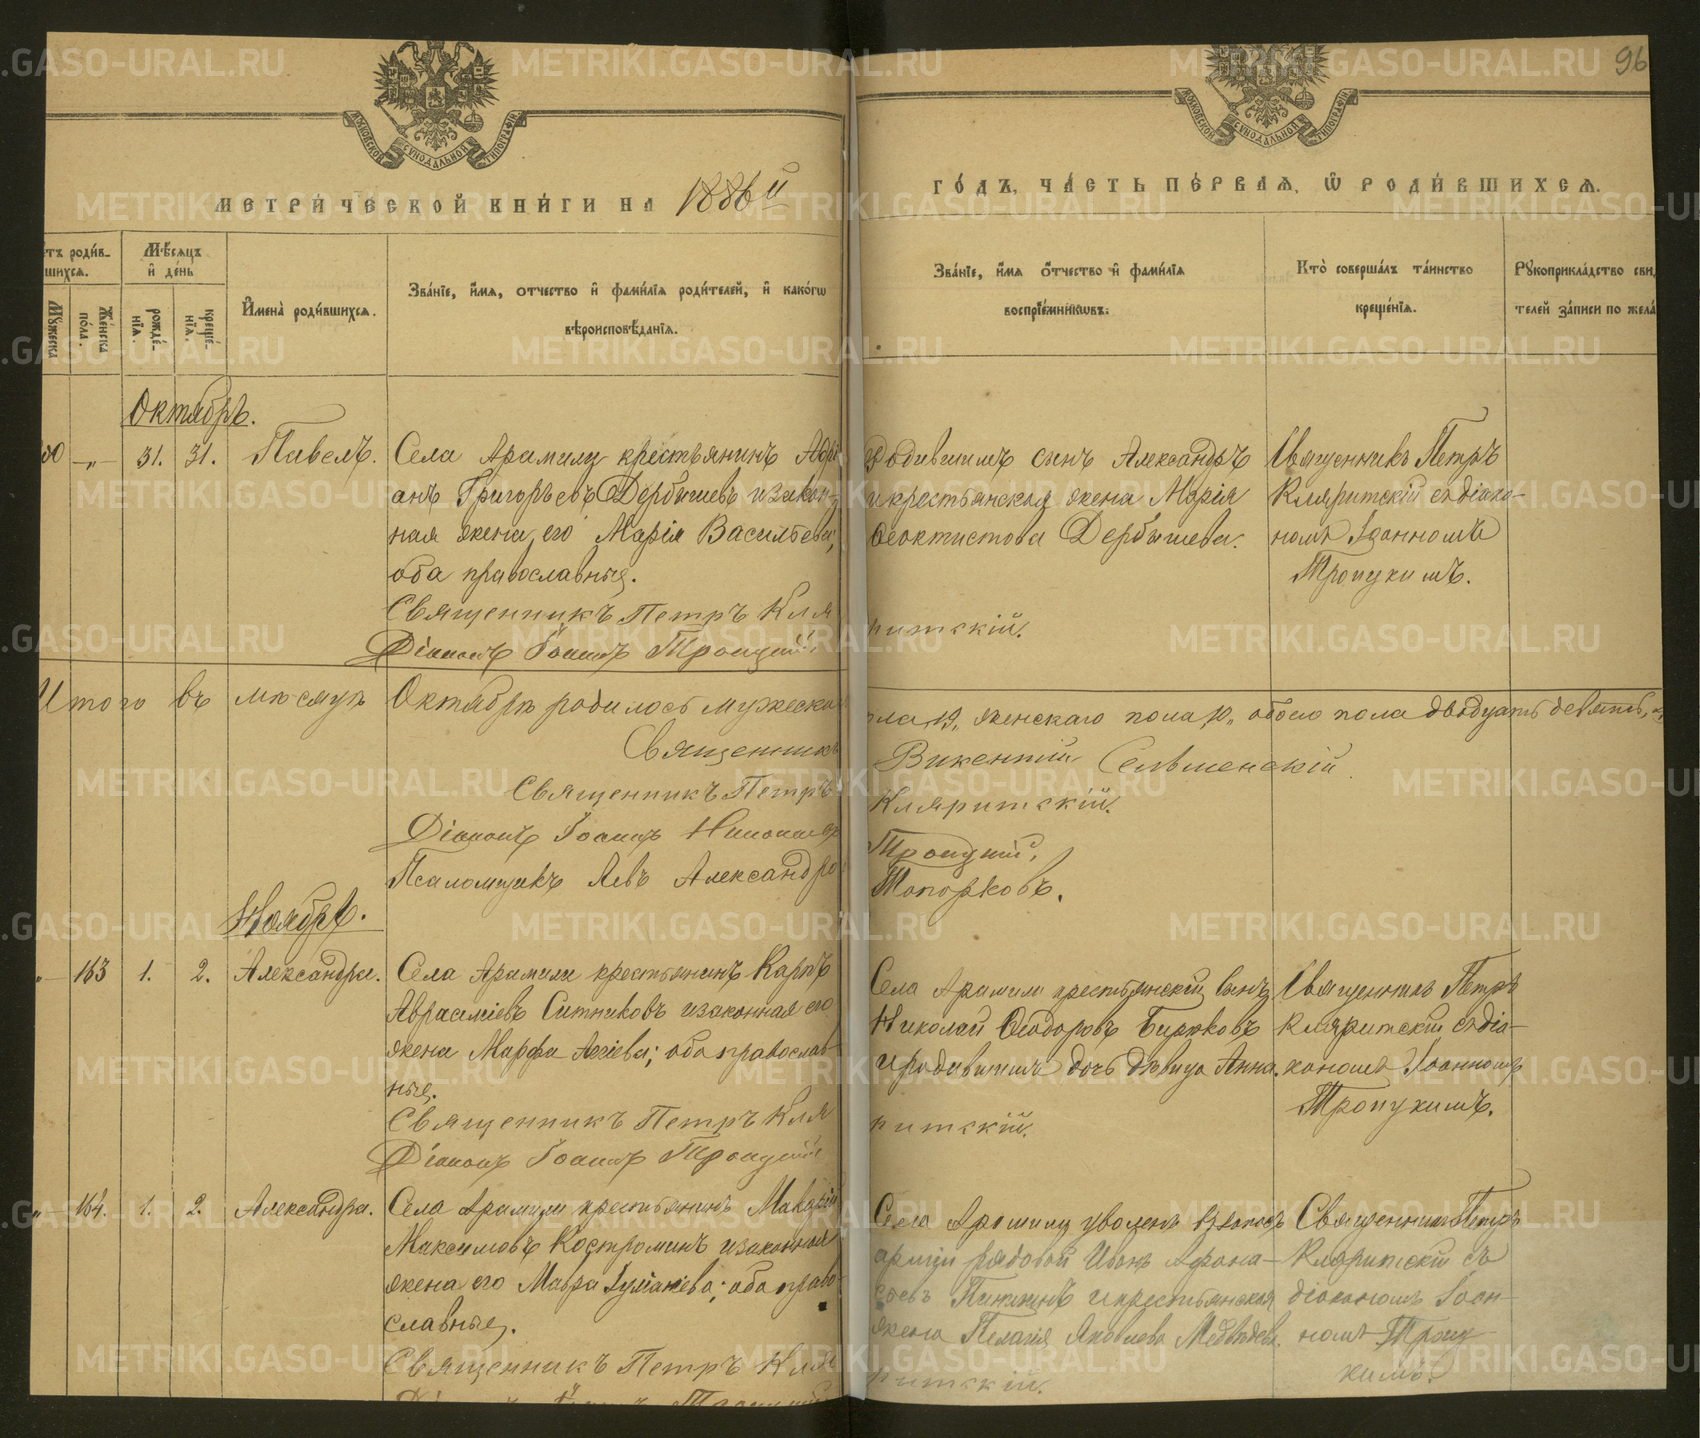 96
МОСКОВСКОЙ СѴНОДАЛЬНОЙ ТИПОГРАФІИ
МОСКОВСКОЙ СѴНОДАЛЬНОЙ ТИПОГРАФІИ
МЕТРИ́ЧЕСКОЙ КНИ́ГИ НА 1886й
ГО́ДЪ, ЧА́СТЬ ПЕ́РВАЯ, Ѿ РОДИ́ВШИХСЯ.
етъ роди́в-
шихся.
Мꙋжеска
Же́нска
по́ла.
Мѣ́сяцъ
и҆ де́нь
рожде́-
нія.
креще́-
нія.
И҆мена̀ роди́вшихся.
Зва́ніе, и҆́мя, отчество и҆ фами́лія роди́телей, и҆ како́гѡ
вѣроисповѣ́данія.
Зва́ніе, и҆́мя о҆́тчество и҆ фами́лія
воспріе́мникѡвъ.
Кто̀ соверша́лъ та́инство
креще́нія.
Рꙋкоприкла́дство сви
телей за́писи по жела́
Октябрь.
— „ — 31. 31. Павелъ.
Села Арамили крестьянинъ Адрі
анъ Григорьевъ Дербышевъ и закон-
ная жена его Марія Васильева,
оба православные.
Священникъ Петръ Кля
Діаконъ Іоаннъ Троицкій
родившимъ сынъ Александръ
и крестьянская жена Марія
Ѳеоктистова Дербышева.
ритскій.
Священникъ Петръ
Кляритскій съ діако-
номъ Іоанномъ
Троицкимъ.
Итого въ мѣсяцѣ Октябрѣ родилось мужеска
пола 19, женскаго пола 10, обоего пола двадцать девять
Священникъ Викентій Сельменскій.
Священникъ Петръ Кляритскій.
Діаконъ Іоаннъ Николаев Троицкій,
Псаломщикъ Левъ Александро Топорковъ.
Ноябрь.
„ — 163 1. 2. Александра.
Села Арамили крестьянинъ Карпъ
Аврааміевъ Ситниковъ и законная его
жена Марфа; оба православ
ные.
Священникъ Петръ Кля
Діаконъ Іоаннъ Троицкій
Села Арамили крестьянскій сынъ
Николай Ѳеодоровъ Бирюковъ
и родившимъ дочь дѣвица Анна.
ритскій.
Священникъ Петръ
Кляритскій съ діа-
кономъ Іоанномъ
Троицкимъ.
„ — 164. 1. 2. Александра.
Села Арамили крестьянинъ Макарій
Максимовъ Костроминъ и законная
жена его Мавра; оба право-
славные.
Священникъ Петръ Кля
Села Арамили уволенъ въ запасъ
арміи рядовой Иванъ Афана-
сьевъ и крестьянская
жена Пелагія Яковлева Медвѣдева.
ритскій.
Священникъ Петръ
Кляритскій съ
діакономъ Іоан-
номъ Троиц-
кимъ.
METRIKI.GASO-URAL.RU